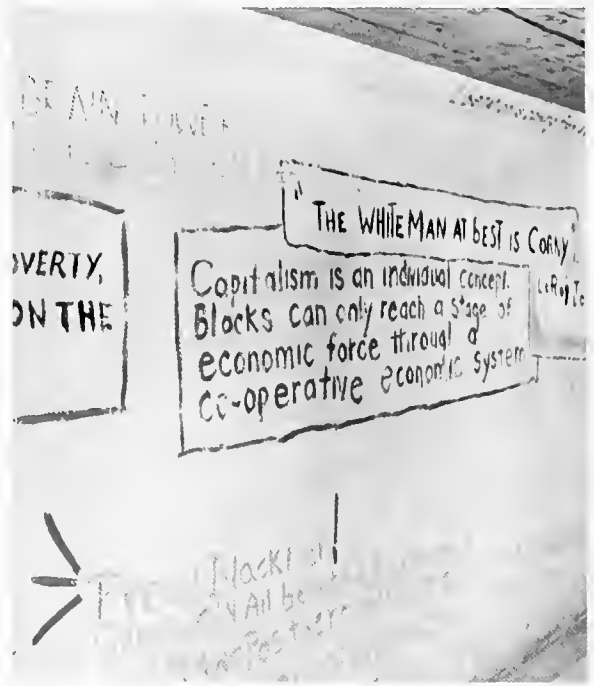 BRAIN POWER
"THE WHITE MAN AT bEST IS CORNY"
LeRoi Jo
OVERTY,
ON THE
Capitalism is an individual concept.
Blacks can only reach a stage of
economic force through a
co-operative economic system
Blacks